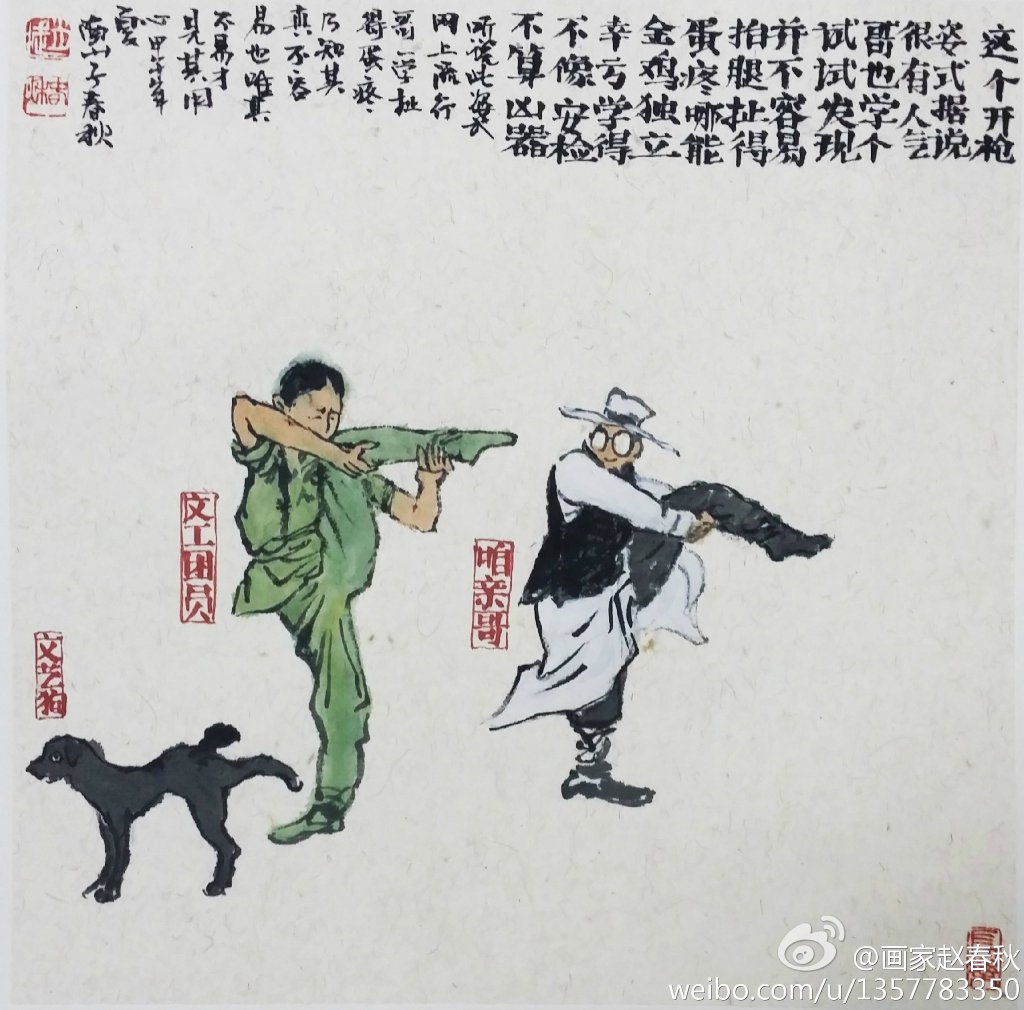 这个开枪
姿式据说
很有人气
哥也学个
试试发现
并不容易
抬腿扯得
蛋疼哪能
金鸡独立
幸亏学得
不像安检
不算凶器
听说此姿式
网上流行
哥一学扯
得蛋疼
乃知其
真不容
易也唯其
不易才
见其用
心甲午年
夏
南山子春秋
文工团员
咱亲哥
文艺狗
@画家赵春秋
weibo.com/u/1357783350